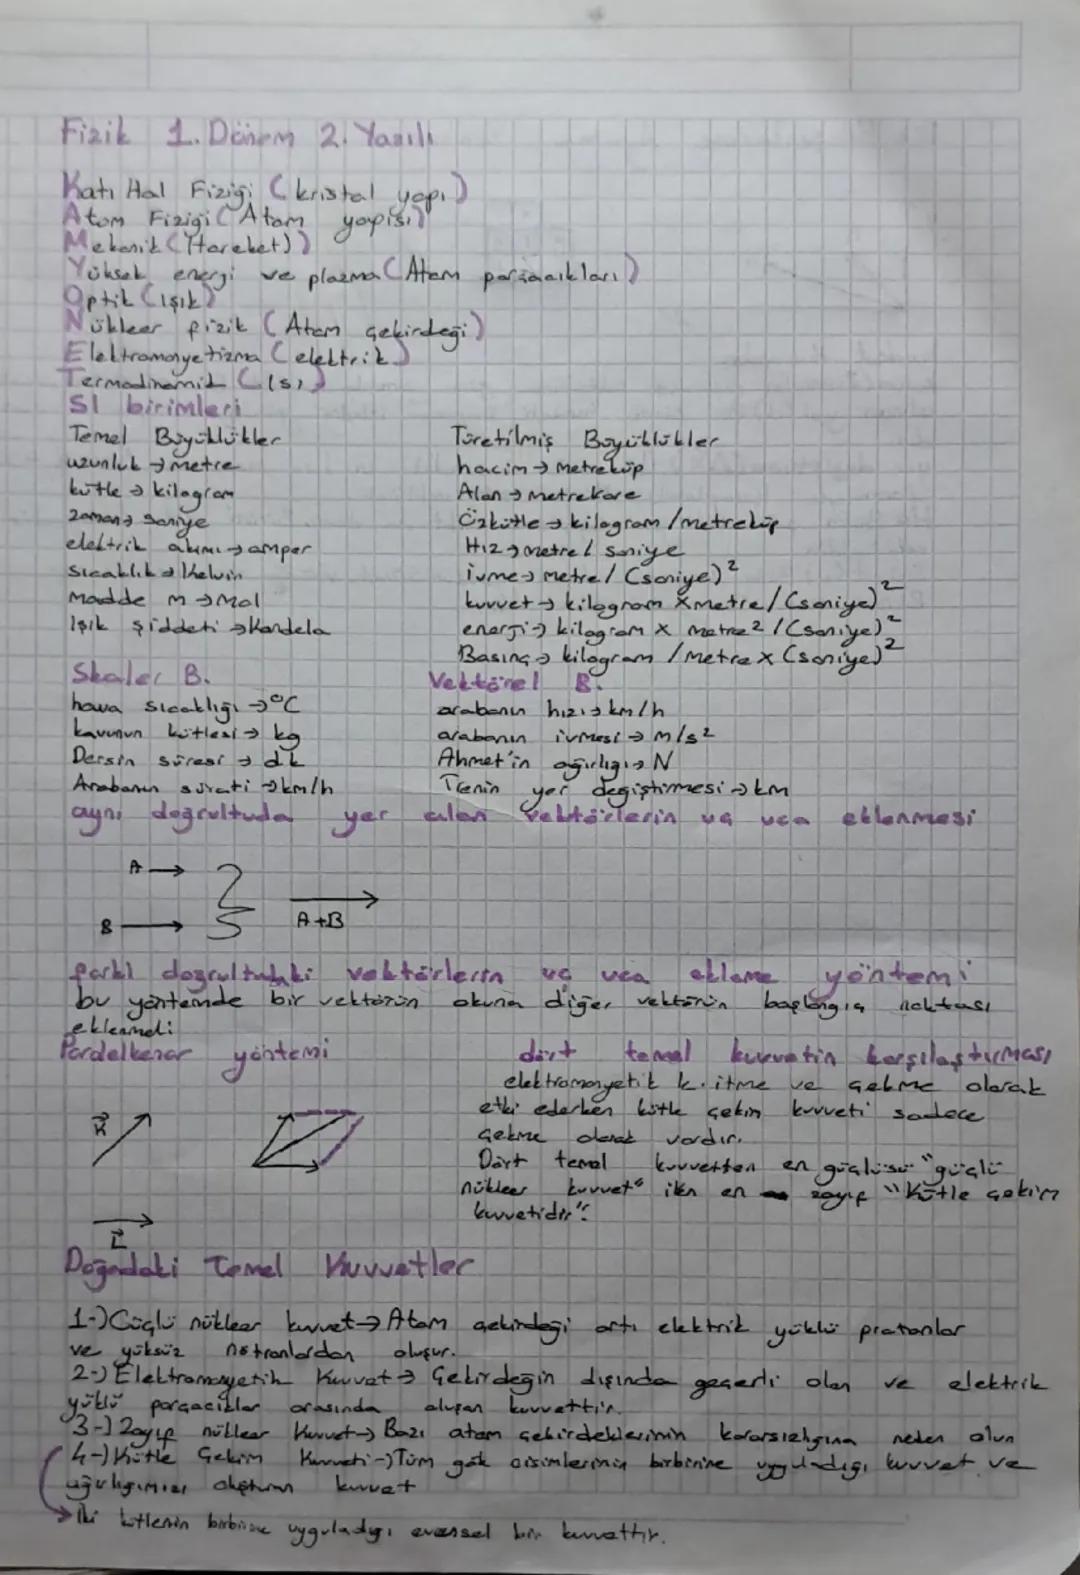 Fizik 1. Dönem 2. Yazılı
Katı Hal Fiziği (kristal yapı)
Atom Fiziği (Atom yapısı)
Mekanik (Hareket)
Yüksek enerji ve plazma (Atom parçacıkları)
Optik (ışık)
Nükleer fizik (Atom çekirdeği)
Elektromanyetizma (elektrik)
Termodinamik (ısı)
SI birimleri
Temel Büyüklükler
uzunluk → metre
kütle → kilogram
zaman → saniye
elektrik akımı → amper
sıcaklık → Kelvin
Madde m → Mol
Işık şiddeti → Kandela
Türetilmiş Büyüklükler
hacim → Metreküp
Alan → Metrekare
Özkütle → kilogram / metreküp
Hız → metre / saniye
ivme → metre / (saniye)²
kuvvet → kilogram x metre / (saniye)²
enerji → kilogram x metre² / (saniye)²
Basınç → kilogram / Metre x (saniye)²
Skaler B.
hava sıcaklığı → °C
kavunun kütlesi → kg
Dersin süresi → dk
Arabanın sürati → km/h
Vektörel B.
arabanın hızı → km/h
arabanın ivmesi → m/s²
Ahmet'in ağırlığı → N
Trenin yer değiştirmesi → km
aynı doğrultuda yer alan vektörlerin uç uca eklenmesi
A →
B →
A+B
farklı doğrultudaki vektörlerin uç uca ekleme yöntemi
bu yöntemde bir vektörün okuna diğer vektörün başlangıç noktası
eklenmeli
Pardelkenar yöntemi
K
L
dört temel kuvvetin karşılaştırması
elektromanyetik k. itme ve çekme olarak
etki ederken kütle çekim kuvveti sadece
çekme olarak vardır.
Dört temel kuvvetten en güçlüsü "güçlü
nükleer kuvvet" iken en zayıf "Kütle çekim
kuvvetidir".
Doğadaki Temel Kuvvetler
1-) Güçlü nükleer kuvvet → Atom çekirdeği artı elektrik yüklü protonlar
ve yüksüz nötronlardan oluşur.
2-) Elektromanyetik Kuvvet → Çekirdeğin dışında geçerli olan ve elektrik
yüklü parçacıklar arasında oluşan kuvvettir.
3-) Zayıf nükleer Kuvvet → Bazı atom çekirdeklerinin kararsızlığına neden olur
4-) Kütle Çekim Kuvveti → Tüm gök cisimlerinin birbirine uyguladığı kuvvet ve
ağırlığımızı oluşturan kuvvet
→ İki kütlenin birbirine uyguladığı evrensel bir kuvvettir.